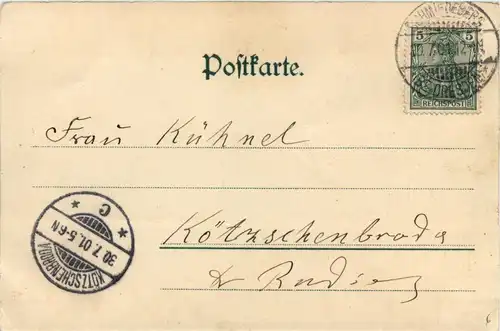 5 5
REICHSPOST
Postkarte.
Frau Kühnel
KÖTZSCHENBRODA
30.7.01.5-6N
* C *
Kötzschenbroda